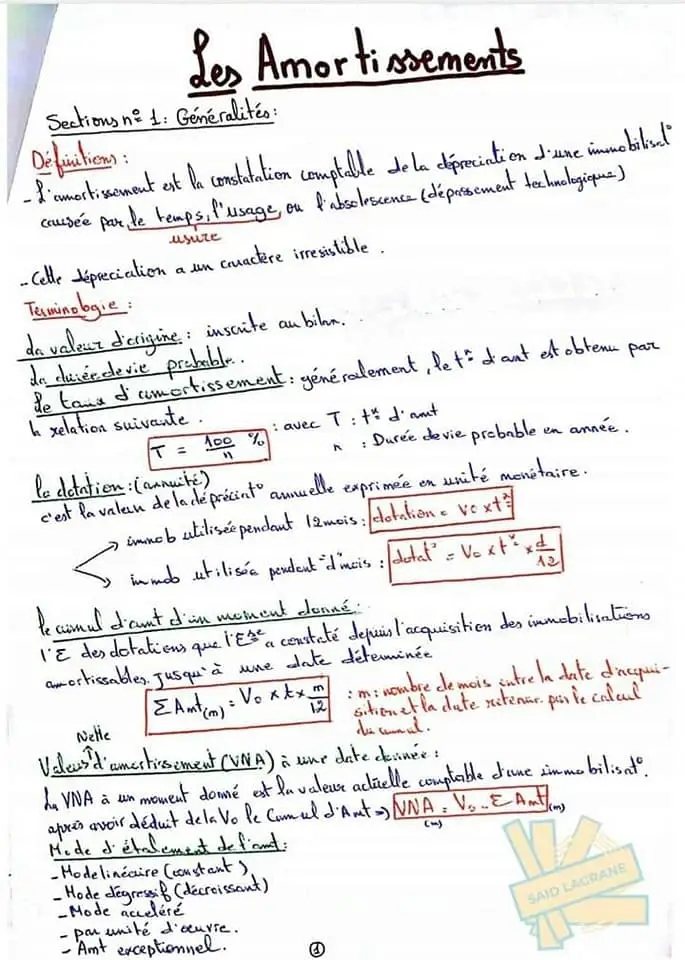 Les Amortissements
Sections n° 1: Généralités:
Définitions :
- L'amortissement est la constatation comptable de la dépreciation d'une immobilisat°
causée par le temps, l'usage, ou l'absolescence (dépassement technologique)
usure
- Cette dépreciation a un caractère irresistible .
Terminologie :
La valeur d'origine : inscrite au bilan.
La durée de vie probable .
Le taux d'amortissement : généralement, le tx d'amt est obtenu par
la relation suivante .
T = 100/n % : avec T : tx d'amt
n : Durée de vie probable en année .
la dotation : (annuité)
c'est la valeur de la dépréciat° annuelle exprimée en unité monétaire .
immob utilisée pendant 12 mois : dotation = VO x tx
immob utilisée pendant "d" mois : dotat° = Vo x tx x d/12
le cumul d'amt d'un moment donné :
l'Σ des dotations que l'Ese a constaté depuis l'acquisition des immobilisations
amortissables, jusqu'à une date déterminée
Σ Amt(m) = Vo x t x m/12 : m : nombre de mois entre la date d'acqui-
sition et la date retenue par le calcul
du cumul.
Nette
Valeur d'amortissement (VNA) à une date donnée :
La VNA à un moment donné est la valeur actuelle comptable d'une immobilisat°.
après avoir déduit de la Vo le Cumul d'Amt => VNA(m) = Vo - Σ Amt(m)
Mode d'étalement de l'amt :
- Mode linéaire (constant)
- Mode dégressif (décroissant)
- Mode accéléré
- par unité d'œuvre.
- Amt exceptionnel.
1
SAID LAGRANE